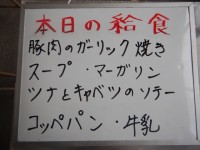 本日の給食
豚肉のガーリック焼き
スープ・マーガリン
ツナとキャベツのソテー
コッペパン・牛乳